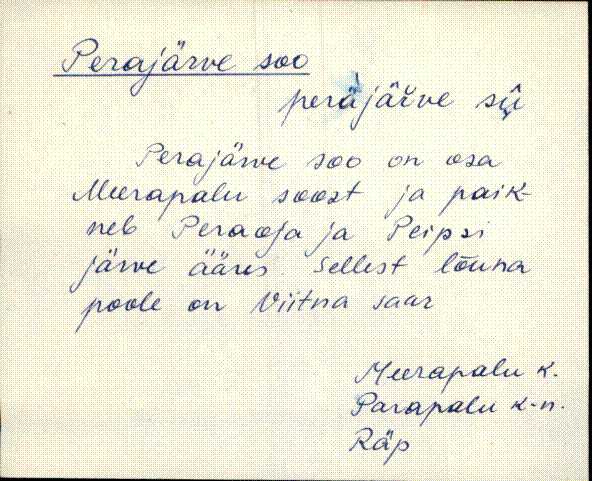 Perajärve soo
peräjäŕve sū̬
Perajärve soo on osa
Meerapalu soost ja paik-
neb Peraoja ja Peipsi
järve ääres. Sellest lõuna
poole on Viitna saar
Meerapalu k.
Parapalu k-n.
Räp